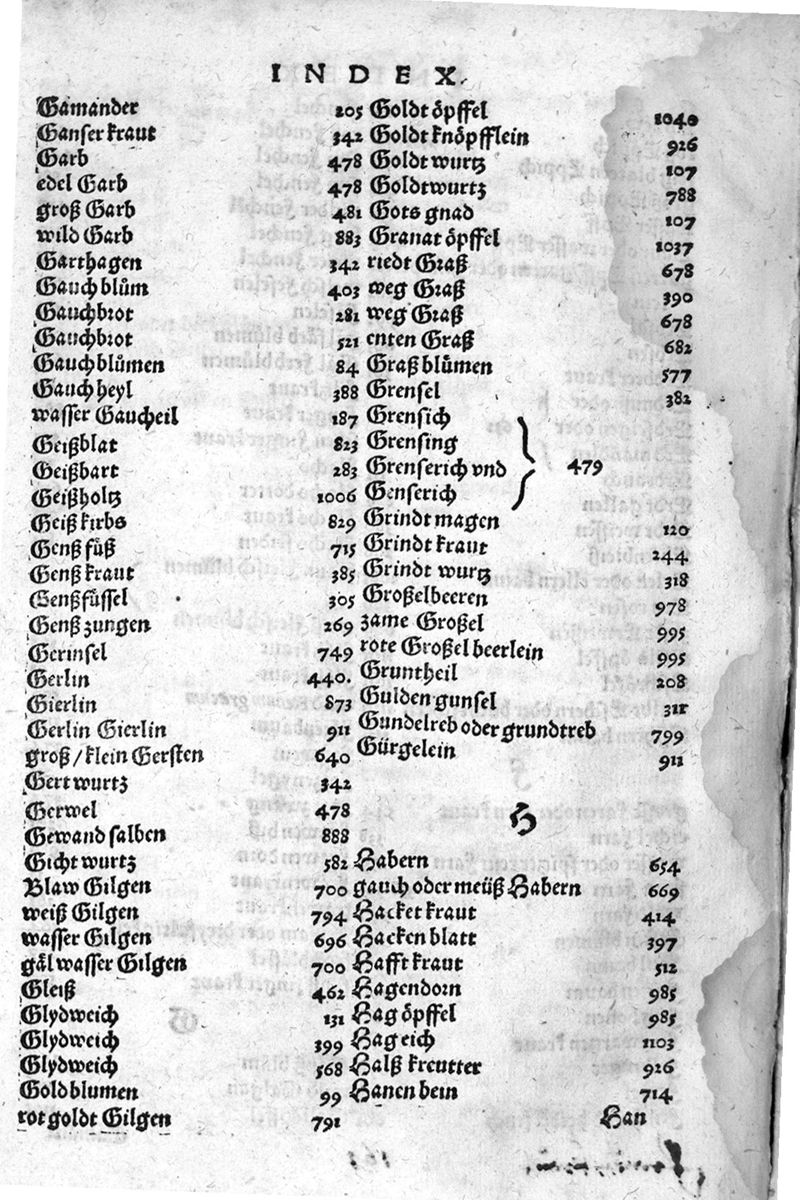 INDEX.
Gamander 205
Ganser kraut 342
Garb 478
edel Garb 478
groß Garb 481
wild Garb 883
Garthagen 342
Gauchblům 403
Gauchbrot 281
Gauchbrot 521
Gauchblůmen 84
Gauchheyl 388
wasser Gaucheil 187
Geißblat 823
Geißbart 283
Geißholtz 1006
Geiß kirbs 829
Genß fůß 715
Genß kraut 385
Genßfüssel 305
Genß zungen 269
Gerinsel 749
Gerlin 440.
Gierlin 873
Gerlin Gierlin 911
groß/klein Gersten 640
Gert wurtz 342
Gerwel 478
Gewand salben 888
Gicht wurtz 582
Blaw Gilgen 700
weiß Gilgen 794
wasser Gilgen 696
gäl wasser Gilgen 700
Gleiß 462
Glydweich 131
Glydweich 399
Glydweich 568
Goldblumen 99
rot goldt Gilgen 791
Goldt öpffel 1040
Goldt knöpfflein 926
Goldt wurtz 107
Goldtwurtz 788
Gots gnad 107
Granat öpffel 1037
riedt Graß 678
weg Graß 390
weg Graß 678
enten Graß 682
Graß blůmen 577
Grensel 382
Grensich
Grensing
Grenserich vnd 479
Genserich
Grindt magen 120
Grindt kraut 244
Grindt wurtz 318
Großelbeeren 978
zame Großel 995
rote Großel beerlein 995
Gruntheil 208
Gulden gunsel 311
Gundelreb oder grundtreb 799
Gürgelein 911
H
Habern 654
gauch oder meüß Habern 669
Hacket kraut 414
Hacken blatt 397
Hafft kraut 512
Hagendorn 985
Hag öpffel 985
Hag eich 1103
Halß kreutter 926
Hanen bein 714
Han